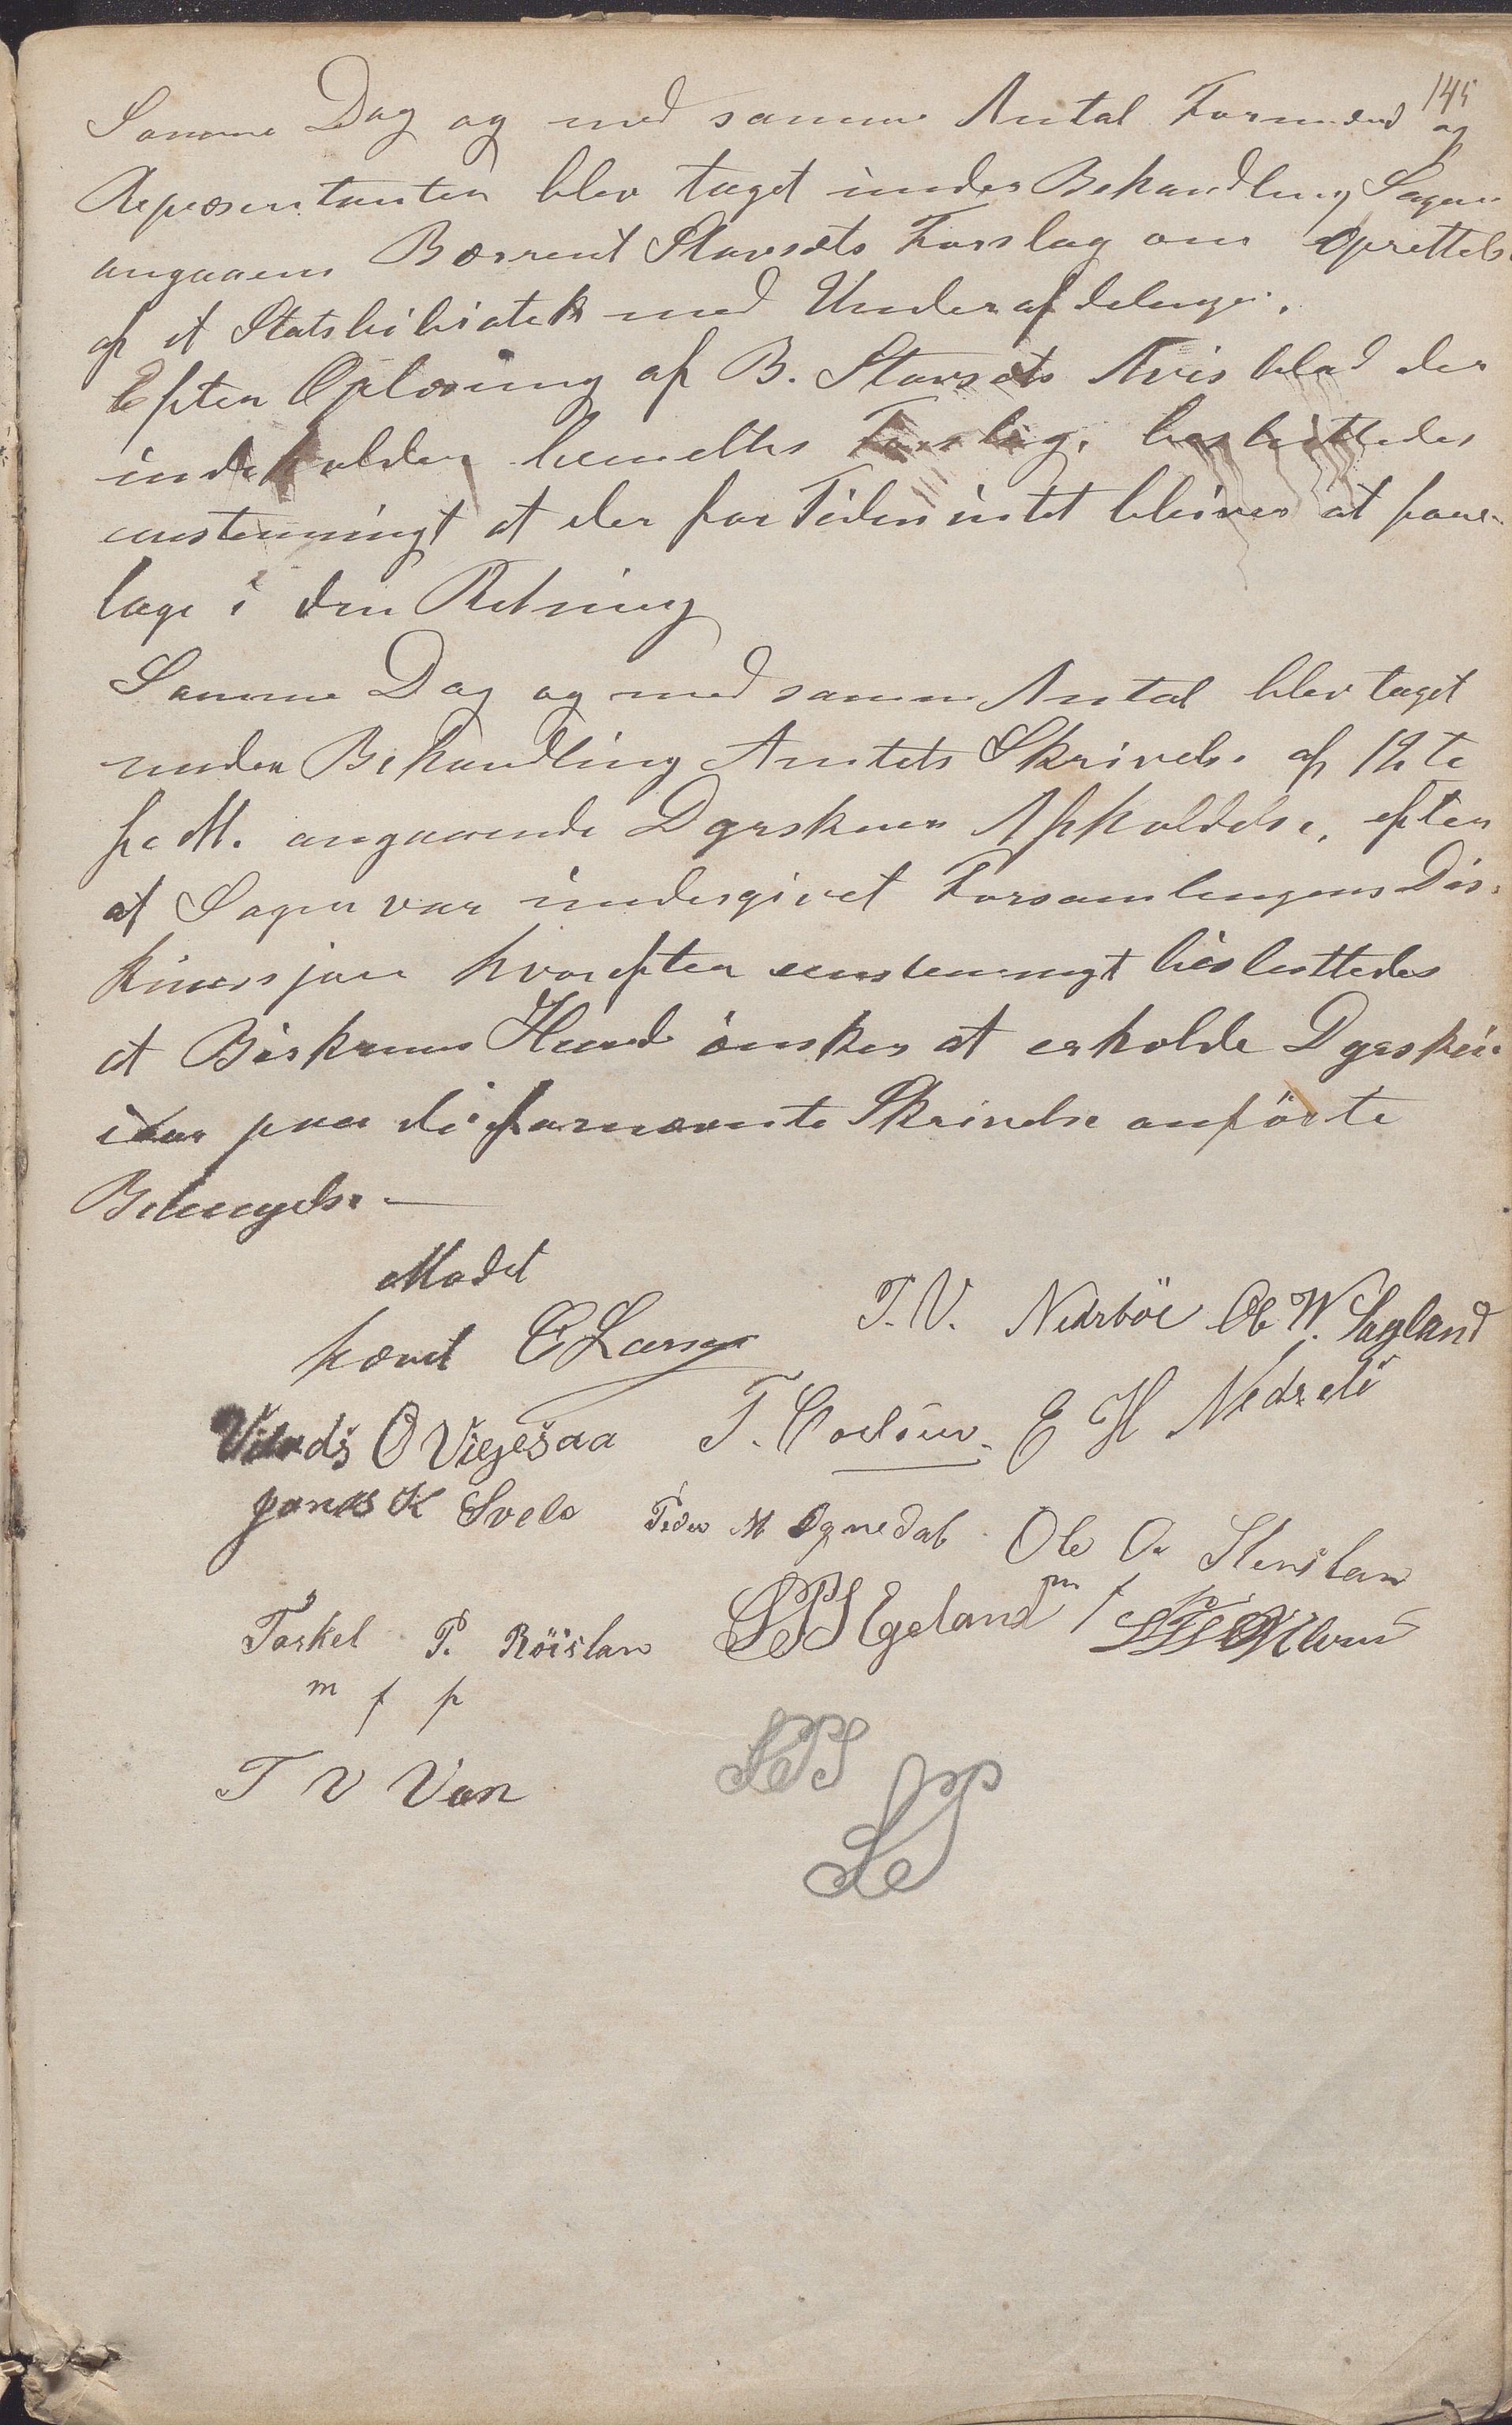 145
Samme Dag og med samme Antal Formænd og
Repræsentanter blev taget under Behandling Sagen
angaaene Bærrent Stavsets Forslag om Oprettels
af et Statsbibiotek med Underafdelinger.
Efter Oplæsning af B. Stavsets Avisblad der
indeholder bemelte Forslag, besluttedes
enstemmigt at der for Tiden intet bliver at fore-
tage i den Retning
Samme Dag og med samme Antal blev taget
under Behandling Amtets Skrivelse af 12te
f. M. angaaende Dyrskuers Afholdelse, efter
at Sagen var undergivet Forsamlingens Dis-
kusjon hvorefter enstemmigt besluttedes
at Birkrems Herred önsker at erholde Dyrsku
paa de i fornævnte Skrivelse anförte
Betingelse. —
Mödet
hævet
T. V. Nedrböe Ole W. Sagland
O Viegesaa T. Carlsen. E H Nedrebö
Jonas K Svela Peder M Ognedal Ole O. Stenslan
Torkel P. Röislan SPS Egeland m f
m f p
T V Van SPS
SP